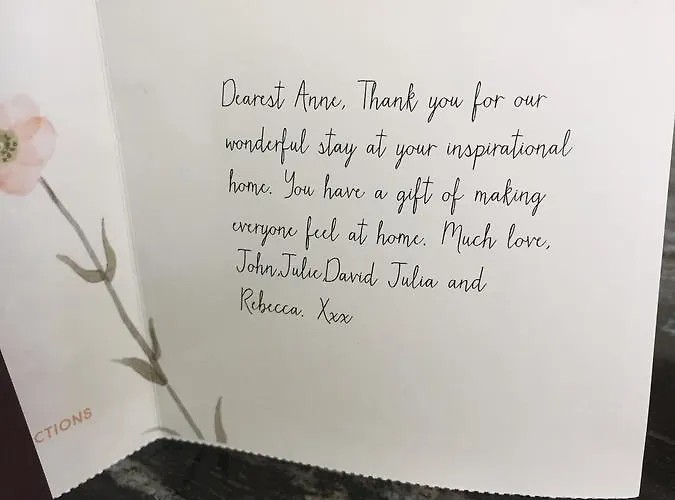 Dearest Anne, Thank you for our
wonderful stay at your inspirational
home. You have a gift of making
everyone feel at home. Much love,
John,Julie,David Julia and
Rebecca. Xxx
CTIONS